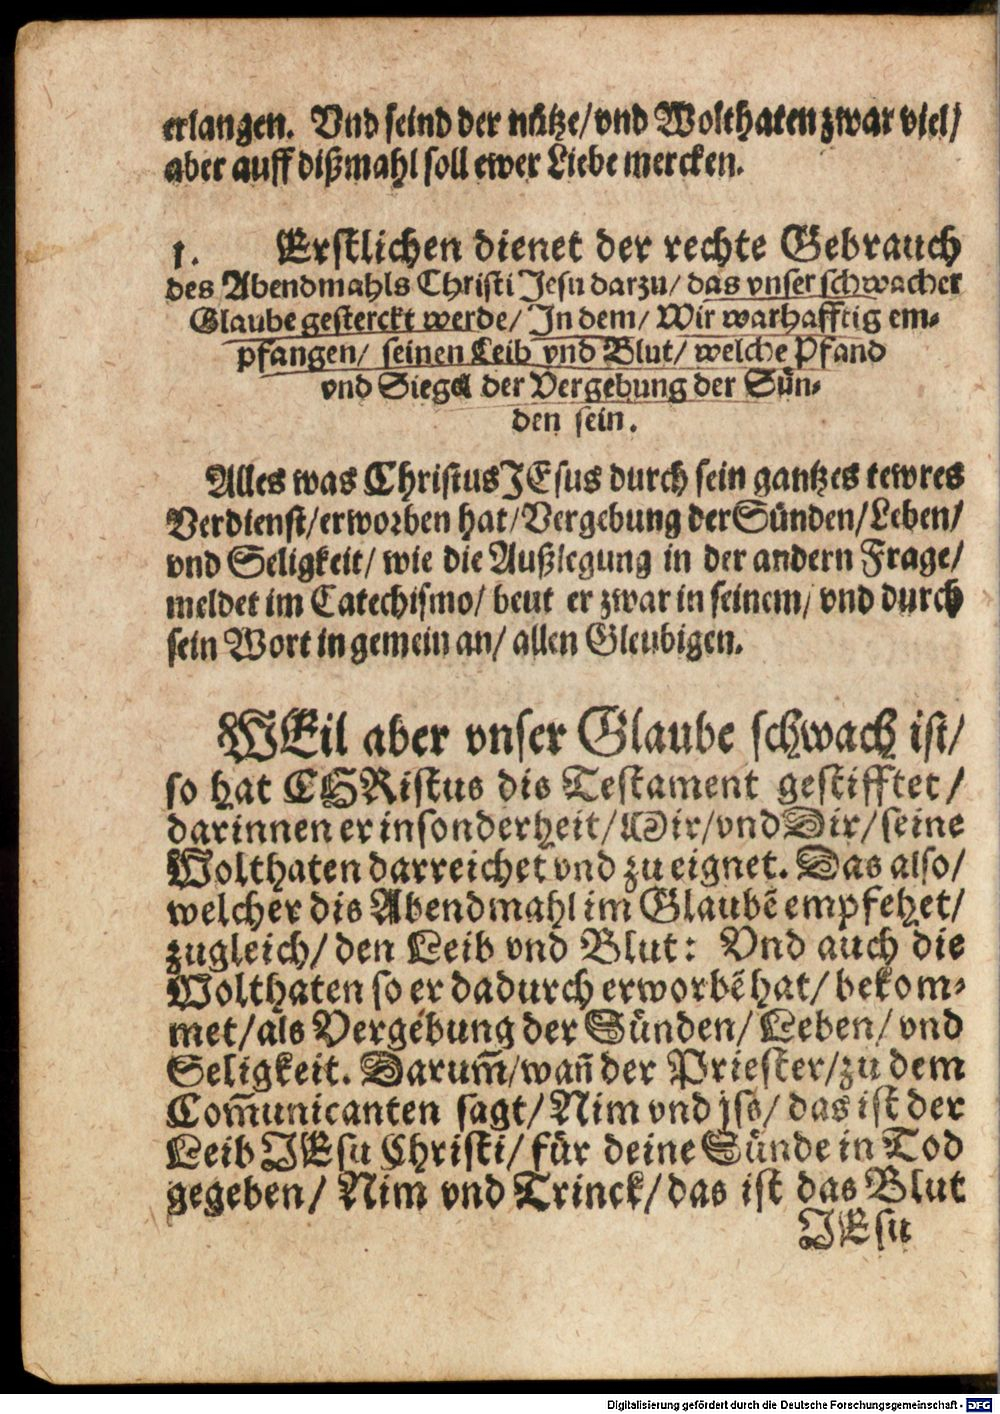 erlangen. Vnd seind der nütze/ vnd Wolthaten zwar viel/
aber auff dißmahl soll ewer Liebe mercken.
1. Erstlichen dienet der rechte Gebrauch
des Abendmahls Christi Jesu darzu/ das vnser schwacher
Glaube gesterckt werde/ In dem/ Wir warhafftig em-
pfangen/ seinen Leib vnd Blut/ welche Pfand
vnd Siegel der Vergebung der Sün-
den sein.
Alles was Christus JEsus durch sein gantzes tewres
Verdienst/ erworben hat/ Vergebung der Sünden/ Leben/
vnd Seligkeit/ wie die Außlegung in der andern Frage/
meldet im Catechismo/ beut er zwar in seinem/ vnd durch
sein Wort in gemein an/ allen Gleubigen.
WEil aber vnser Glaube schwach ist/
so hat CHRistus dis Testament gestifftet/
darinnen er insonderheit/ Mir/ vnd Dir/ seine
Wolthaten darreichet vnd zu eignet. Das also/
welcher dis Abendmahl im Glaubẽ empfehet/
zugleich/ den Leib vnd Blut: Vnd auch die
Wolthaten so er dadurch erworbẽ hat/ bekom-
met/ als Vergebung der Sünden/ Leben/ vnd
Seligkeit. Darum̃/ wañ der Priester/ zu dem
Com̃unicanten sagt/ Nim vnd jss/ das ist der
Leib JEsu Christi/ für deine Sünde in Tod
gegeben/ Nim vnd Trinck/ das ist das Blut
JEsu
Digitalisierung gefördert durch die Deutsche Forschungsgemeinschaft - DFG